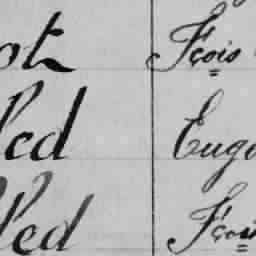 ot Fçois
led Euge
led Fçois